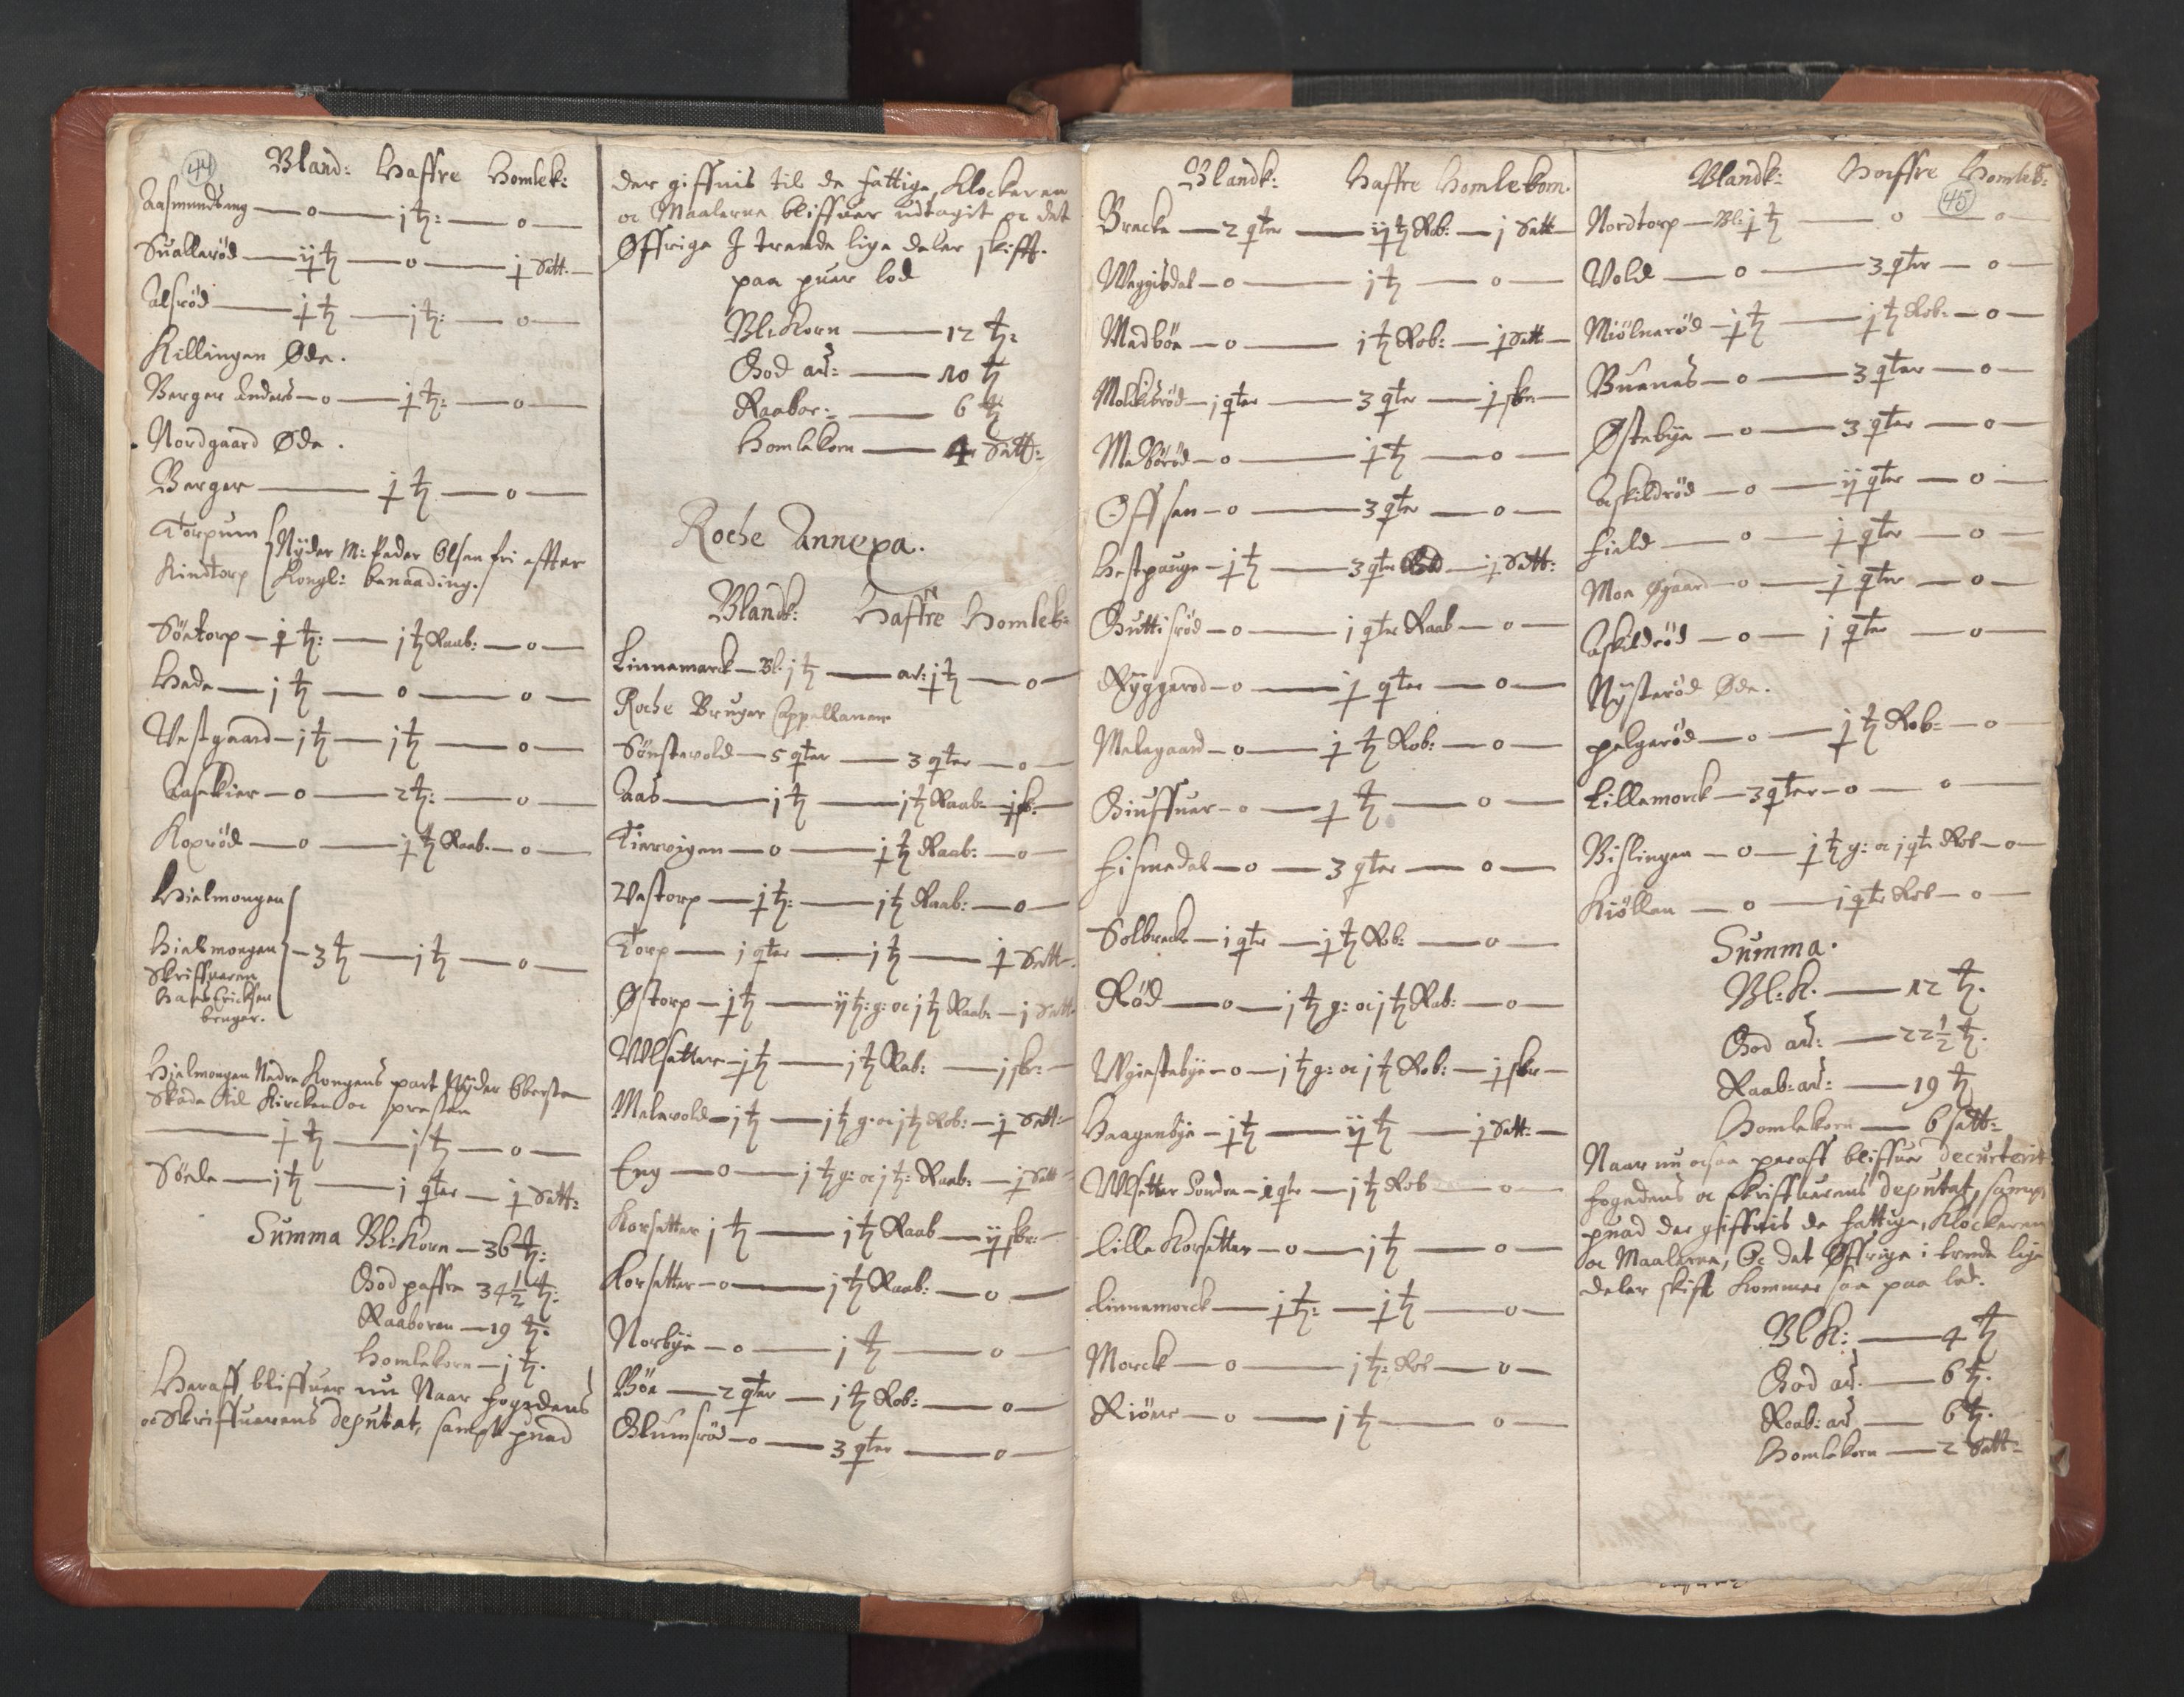 44
Bland: Haffre Homlek:
Aasmundsrng — o — j th: — o —
Suallerød — ij th — o — j Sett. —
Alsrød — j th — j th: — o —
Killingen Øde.
Berger Enders — o — j th: — o —
Nordgaard Øde.
Berger — j th — o —
Torpum Kindtorp Nyder M: Peder Olsen fri effter
Kongl: benaading.
Søntorp — j th: — j th Raab: — o —
Hede — j th — o — o —
Vestgaard — j th — j th — o —
Aasekier — o — 2 th: — o —
Koxrød — o — j th Raab. — o —
Hielmongen
Hielmongen — 3 th — j th — o —
Skriffueren
Hans Erichsen
bruger.
Hielmongen Nedre Kongens part Nyder Obersten
Skøde til Kircken oc presten
— j th — j th — o —
Sørle — j th — j qter — j Sett:
Summa Bl: Korn — 36 th:
God haffre 34 1/2 th:
Raaboren — 19 th.
Homlekorn — j th.
Heraff bliffuer nu Naar fogedens
oc Skriffuerens deputat, sampt huad
der giffuis til de fattige, Klockeren
oc Maalerne bliffuer udtagit oc det
Øffrige I trende lige deler skifft.
paa huer lod
Bl: Korn — 12 th:
God au: — 10 th
Raabor: — 6 th
Homlekorn — 4 Sett:
Roche Annexa.
Blandk: Haffre Homlek:
Linnemarck — Bl. j th — au: j th — o —
Roche Bruger Cappellanen
Sønstevold — 5 qter — 3 qter — o —
Aas — j th — j th Raab: — j sk: —
Tiervigen — o — j th Raab: — o —
Vestorp — j th: — j th Raab: — o —
Torp — j qter — j th — j Sett.
Østorp — j th — ij th: g: oc j th Raab: — j Sett.
Wlsetter — j th — j th Rab: — j skr: —
Melevold — j th — j th g. oc j th Rob: — j Sett: —
Eng — o — j th g: oc j th: Raab: — j Sett —
Korsetter j th — j th Raab — ij skr: —
Korsetter — o — j th Raab: — o —
Norbye — o — j th — o —
Bøe — 2 qter — j th Rob: — o —
Glumsrød — o — 3 qter — o —
Blandk: Haffre Homlekorn.
Bracke — 2 qter — ij th Rob: — j Sett —
Weggisdal — o — j th — o —
Medbøe — o — j th Rob: — j Sett —
Molkisrød — j qter — 3 qter — j skr —
Mæssørød — o — j th — o —
Offsen — o — 3 qter — o —
Hesthauge — j th — 3 qter — j Sett:
Guttisrød — o — j qter Raab — o —
Ryggerod — o — j qter — o —
Melegaard — o — j th Rob: — o —
Giuffuer — o — j th — o —
Fismedal — o — 3 qter — o —
Solbreck — j qter — j th Rob: — o —
Rød — o — j th g: oc j th Rab: — o —
Wgiestebye — o — j th g: oc j th Rob: — j skr —
Haagenbye — j th — ij th — j Sett: —
Wlsetter Søndre — j qter — j th Rob — o —
Lille Korsetter — o — j th — o —
Linnemorck — j th: — j th — o —
Morck — o — j th: Rob — o —
Riøner — o — j th — o —
Blandk: Haffre Homlek:
45
Nordtorp — Bl: j th — o — o —
Vold — o — 3 qter — o —
Miølnerød — j th — j th Rob: — o —
Buenes — o — 3 qter — o —
Østebye — o — 3 qter — o —
Askildrød — o — ij qter — o —
Field — o — j qter — o —
Moe Øgaard — o — j qter — o —
Askildrød — o — j qter — o —
Nysterød Øde.
Helgerød — o — j th Rob: — o —
Lillemorck — 3 qter — o — o —
Bislingen — o — j th g: oc j qter Rob — o —
Kiøllen — o — j qter Rob — o —
Summa.
Bl: K. — 12 th.
God au: — 22 1/2 th.
Raab: au: — 19 th
Homlekorn — 6 sett:
Naar nu ocsaa heraff bliffuer decurterit
fogedens oc Skriffuerens deputat, sampt
huad der giffuis de fattige, Klockeren
oc Maalerne, Oc det Øffrige i trende lige
deler skift kommer saa paa lod.
Bl K: — 4 th
God au. — 6 th.
Raab: au. — 6 th.
Homlekorn — 2 Sett: